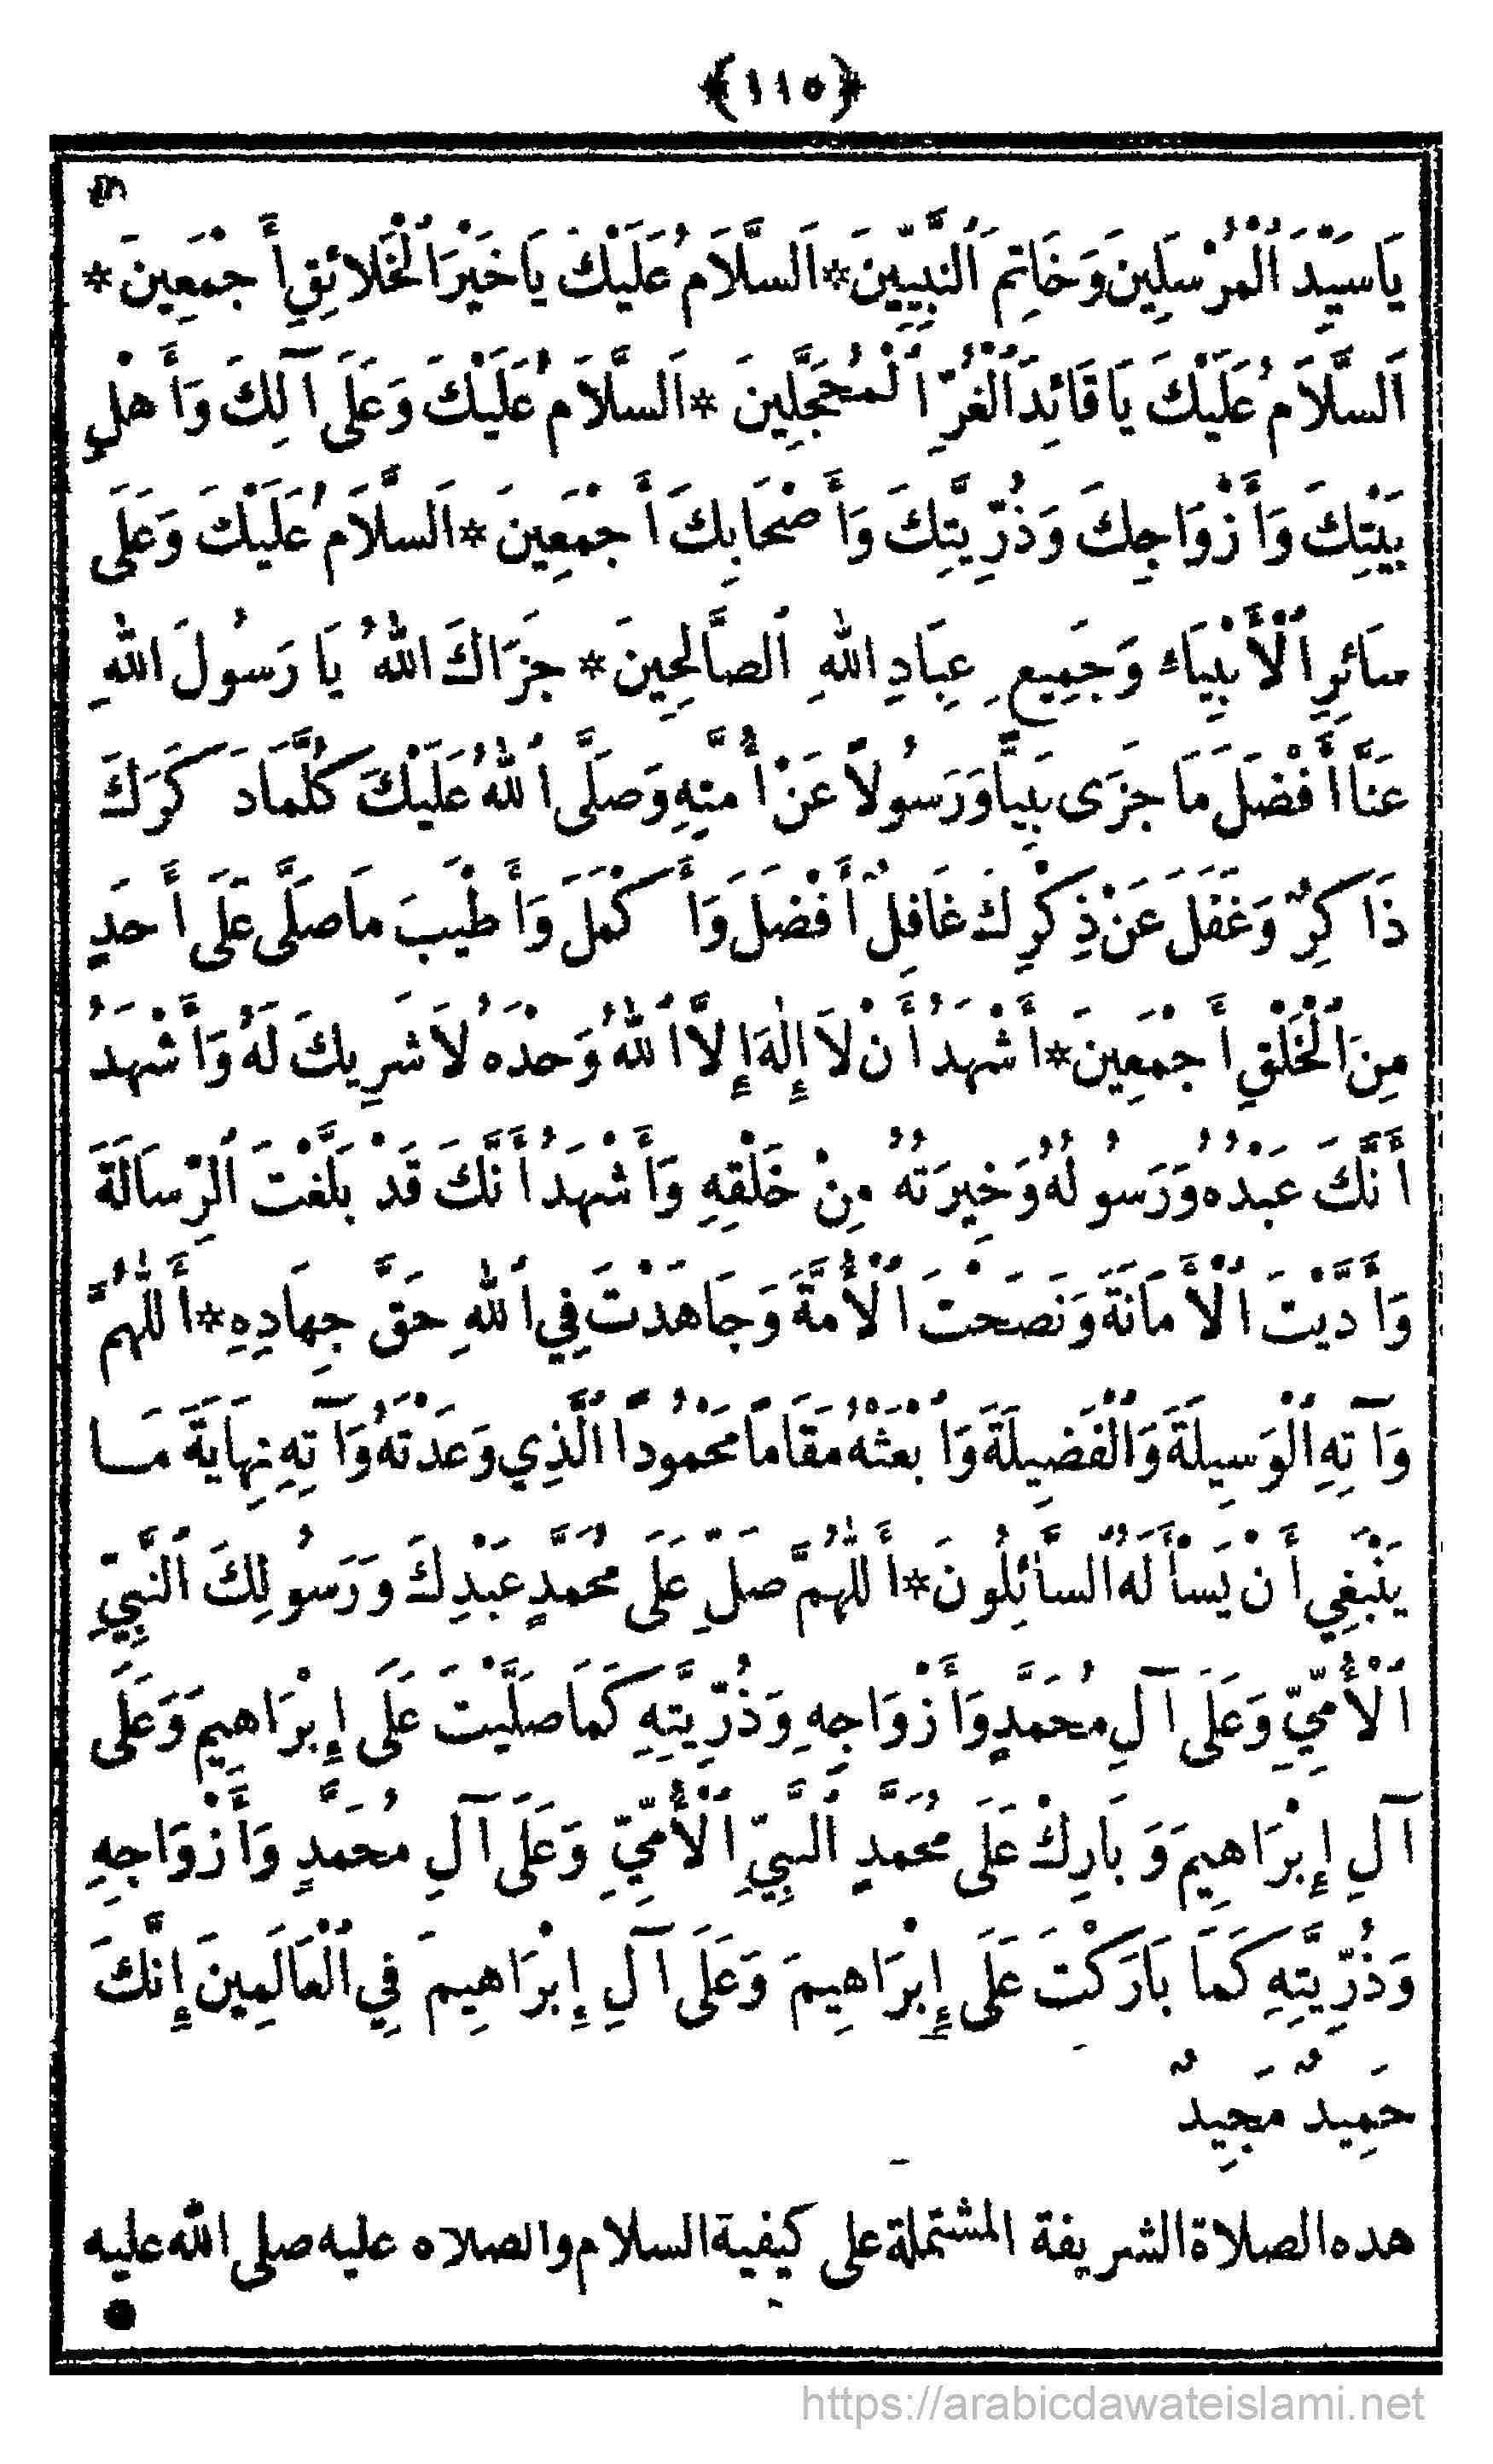 ﴿١١٥﴾
يَا سَيِّدَ ٱلْمُرْسَلِينَ وَخَاتِمَ ٱلنَّبِيِّينَ * اَلسَّلَامُ عَلَيْكَ يَا خَيْرَ ٱلْخَلَائِقِ أَجْمَعِينَ *
اَلسَّلَامُ عَلَيْكَ يَا قَائِدَ ٱلْغُرِّ ٱلْمُحَجَّلِينَ * اَلسَّلَامُ عَلَيْكَ وَعَلَى آلِكَ وَأَهْلِ
بَيْتِكَ وَأَزْوَاجِكَ وَذُرِّيَّتِكَ وَأَصْحَابِكَ أَجْمَعِينَ * اَلسَّلَامُ عَلَيْكَ وَعَلَى
سَائِرِ ٱلْأَنْبِيَاءِ وَجَمِيعِ عِبَادِ اللهِ ٱلصَّالِحِينَ * جَزَاكَ اللهُ يَا رَسُولَ اللهِ
عَنَّا أَفْضَلَ مَا جَزَى نَبِيًّا وَرَسُولاً عَنْ أُمَّتِهِ وَصَلَّى ٱللهُ عَلَيْكَ كُلَّمَا ذَكَرَكَ
ذَاكِرٌ وَغَفَلَ عَنْ ذِكْرِكَ غَافِلٌ أَفْضَلَ وَأَكْمَلَ وَأَطْيَبَ مَا صَلَّى عَلَى أَحَدٍ
مِنَ ٱلْخَلْقِ أَجْمَعِينَ * أَشْهَدُ أَنْ لَا إِلٰهَ إِلاَّ ٱللهُ وَحْدَهُ لَا شَرِيكَ لَهُ وَأَشْهَدُ
أَنَّكَ عَبْدُهُ وَرَسُولُهُ وَخِيرَتُهُ مِنْ خَلْقِهِ وَأَشْهَدُ أَنَّكَ قَدْ بَلَّغْتَ ٱلرِّسَالَةَ
وَأَدَّيْتَ ٱلْأَمَانَةَ وَنَصَحْتَ ٱلْأُمَّةَ وَجَاهَدْتَ فِي ٱللهِ حَقَّ جِهَادِهِ * أَللّٰهُمَّ
وَآتِهِ ٱلْوَسِيلَةَ وَٱلْفَضِيلَةَ وَٱبْعَثْهُ مَقَامًا مَحْمُودًا ٱلَّذِي وَعَدْتَهُ وَآتِهِ نِهَايَةَ مَا
يَنْبَغِي أَنْ يَسْأَلَهُ ٱلسَّائِلُونَ * أَللّٰهُمَّ صَلِّ عَلَى مُحَمَّدٍ عَبْدِكَ وَرَسُولِكَ ٱلنَّبِيِّ
ٱلْأُمِّيِّ وَعَلَى آلِ مُحَمَّدٍ وَأَزْوَاجِهِ وَذُرِّيَّتِهِ كَمَا صَلَّيْتَ عَلَى إِبْرَاهِيمَ وَعَلَى
آلِ إِبْرَاهِيمَ وَبَارِكْ عَلَى مُحَمَّدٍ ٱلنَّبِيِّ ٱلْأُمِّيِّ وَعَلَى آلِ مُحَمَّدٍ وَأَزْوَاجِهِ
وَذُرِّيَّتِهِ كَمَا بَارَكْتَ عَلَى إِبْرَاهِيمَ وَعَلَى آلِ إِبْرَاهِيمَ فِي ٱلْعَالَمِينَ إِنَّكَ
حَمِيدٌ مَجِيدٌ
هذه الصلاة الشريفة المشتملة على كيفية السلام والصلاه عليه صلى الله عليه
https://arabicdawateislami.net